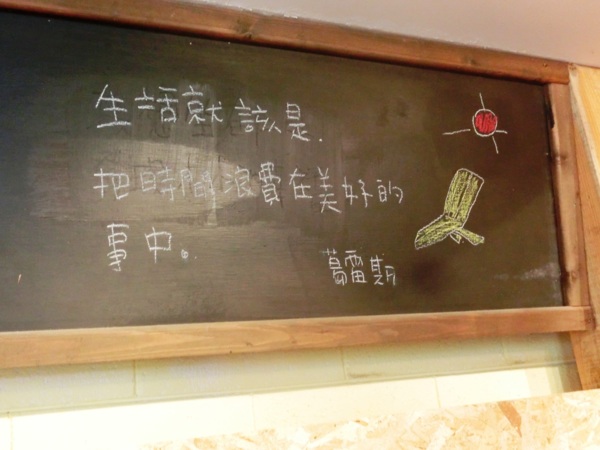 生活就該是.
把時間浪費在美好的
事中。
葛雷期